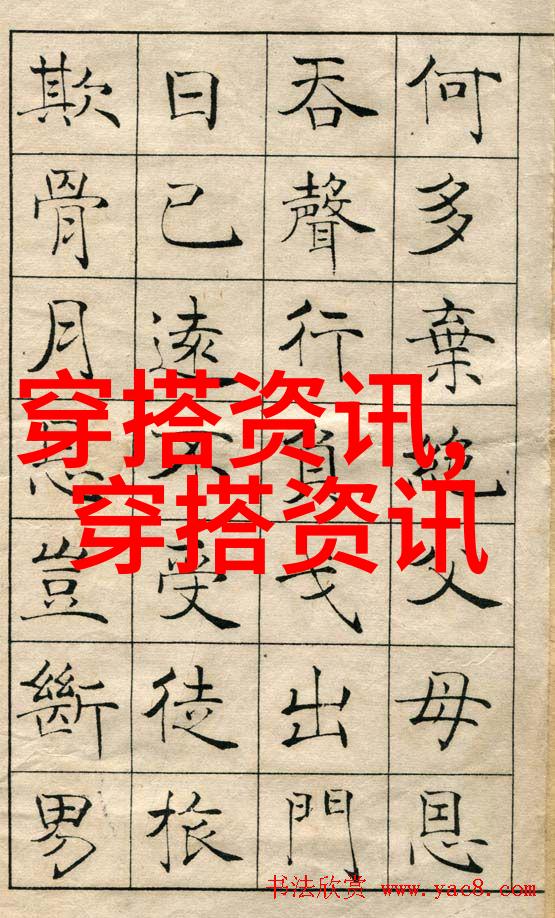 何多棄絶父母恩
吞聲行負戈出門
日已遠不受徒旅
欺骨月恩豈斷男
穿搭资讯,
穿搭资讯
书法欣赏 www.yac8.com